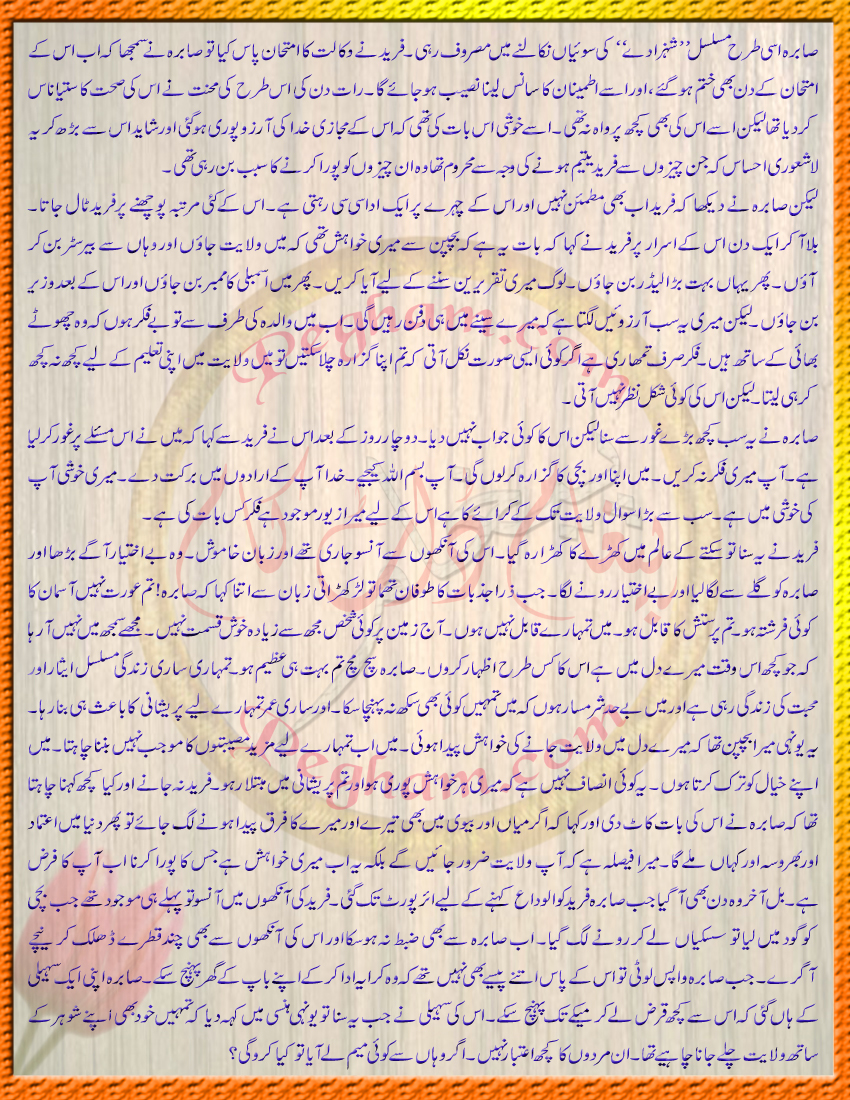 صابرہ اسی طرح مسلسل ’’شہزادے‘‘ کی سوئیاں نکالنے میں مصروف رہی۔ فرید نے وکالت کا امتحان پاس کیا تو صابرہ نے سمجھا کہ اب اس کے
امتحان کے دن بھی ختم ہو گئے، اور اسے اطمینان کا سانس لینا نصیب ہو جائے گا۔ رات دن کی اس طرح کی محنت نے اس کی صحت کا ستیاناس
کر دیا تھا لیکن اسے اس کی بھی کچھ پرواہ نہ تھی۔ اسے خوشی اس بات کی تھی کہ اس کے مجازی خدا کی آرزو پوری ہو گئی اور شاید اس سے بڑھ کر یہ
لاشعوری احساس کہ جن چیزوں سے فرید یتیم ہونے کی وجہ سے محروم تھا وہ ان چیزوں کو پورا کرنے کا سبب بن رہی تھی۔
لیکن صابرہ نے دیکھا کہ فرید اب بھی مطمئن نہیں اور اس کے چہرے پر ایک اداسی سی رہتی ہے۔ اس کے کئی مرتبہ پوچھنے پر فرید ٹال جاتا۔
بلاآکر ایک دن اس کے اسرار پر فرید نے کہا کہ بات یہ ہے کہ بچپن سے میری خواہش تھی کہ میں ولایت جاؤں اور وہاں سے بیرسٹر بن کر
آؤں۔ پھر یہاں بہت بڑا لیڈر بن جاؤں۔ لوگ میری تقریریں سننے کے لیے آیا کریں۔ پھر میں اسمبلی کا ممبر بن جاؤں اور اس کے بعد وزیر
بن جاؤں۔ لیکن میری یہ سب آرزوئیں لگتا ہے کہ میرے سینے میں ہی دفن رہیں گی۔ اب میں والدہ کی طرف سے تو بے فکر ہوں کہ وہ چھوٹے
بھائی کے ساتھ ہیں۔ فکر صرف تمھاری ہے اگر کوئی ایسی صورت نکل آتی کہ تم اپنا گزارہ چلا سکتیں تو میں ولایت میں اپنی تعلیم کے لیے کچھ نہ کچھ
کر ہی لیتا۔ لیکن اس کی کوئی شکل نظر نہیں آتی۔
صابرہ نے یہ سب کچھ بڑے غور سے سنا لیکن اس کا کوئی جواب نہیں دیا۔ دو چار روز کے بعد اس نے فرید سے کہا کہ میں نے اس مسئلے پر غور کر لیا
ہے۔ آپ میری فکر نہ کریں۔ میں اپنا اور بچی کا گزارہ کر لوں گی۔ آپ بسم اللہ کیجیے۔ خدا آپ کے ارادوں میں برکت دے۔ میری خوشی آپ
کی خوشی میں ہے۔ سب سے بڑا سوال ولایت تک کے کرائے کا ہے اس کے لیے میرا زیور موجود ہے فکر کس بات کی ہے۔
فرید نے یہ سنا تو سکتے کے عالم میں کھڑے کا کھڑا رہ گیا۔ اس کی آنکھوں سے آنسو جاری تھے اور زبان خاموش۔ وہ بے اختیار آگے بڑھا اور
صابرہ کو گلے سے لگا لیا اور بے اختیار رونے لگا۔ جب ذرا جذبات کا طوفان تھما تو لڑکھڑاتی زبان سے اتنا کہا کہ صابرہ! تم عورت نہیں آسمان کا
کوئی فرشتہ ہو۔ تم پرستش کا قابل ہو۔ میں تمہارے قابل نہیں ہوں۔ آج زمین پر کوئی شخص مجھ سے زیادہ خوش قسمت نہیں۔ مجھے سمجھ میں نہیں آ رہا
کہ جو کچھ اس وقت میرے دل میں ہے اس کا کس طرح اظہار کروں۔ صابرہ سچ مچ تم بہت ہی عظیم ہو۔ تمہاری ساری زندگی مسلسل ایثار اور
محبت کی زندگی رہی ہے اور میں بے حد شرمسار ہوں کہ میں تمہیں کوئی بھی سکھ نہ پہنچا سکا۔ اور ساری عمر تمہارے لیے پریشانی کا باعث ہی بنا رہا۔
یہ یونہی میرا بچپن تھا کہ میرے دل میں ولایت جانے کی خواہش پیدا ہوئی۔ میں اب تمہارے لیے مزید مصیبتوں کا موجب نہیں بننا چاہتا۔ میں
اپنے خیال کو ترک کرتا ہوں۔ یہ کوئی انصاف نہیں ہے کہ میری ہر خواہش پوری ہو اور تم پریشانی میں مبتلا رہو۔ فرید نہ جانے اور کیا کچھ کہنا چاہتا
تھا کہ صابرہ نے اس کی بات کاٹ دی اور کہا کہ اگر میاں اور بیوی میں بھی تیرے اور میرے کا فرق پیدا ہونے لگ جائے تو پھر دنیا میں اعتماد
اور بھروسہ اور کہاں ملے گا۔ میرا فیصلہ ہے کہ آپ ولایت ضرور جائیں گے بلکہ یہ اب میری خواہش ہے جس کا پورا کرنا اب آپ کا فرض
ہے۔ بل آخر وہ دن بھی آ گیا جب صابرہ فرید کو الوداع کہنے کے لیے ائر پورٹ تک گئی۔ فرید کی آنکھوں میں آنسو تو پہلے ہی موجود تھے جب بچی
کو گود میں لیا تو سسکیاں لے کر رونے لگ گیا۔ اب صابرہ سے بھی ضبط نہ ہو سکا اور اس کی آنکھوں سے بھی چند قطرے ڈھلک کر نیچے
آ گرے۔ جب صابرہ واپس لوٹی تو اس کے پاس اتنے پیسے بھی نہیں تھے کہ وہ کرایہ ادا کر کے اپنے باپ کے گھر پہنچ سکے۔ صابرہ اپنی ایک سہیلی
کے ہاں گئی کہ اس سے کچھ قرض لے کر میکے تک پہنچ سکے۔ اس کی سہیلی نے جب یہ سنا تو یونہی ہنسی میں کہہ دیا کہ تمہیں خود بھی اپنے شوہر کے
ساتھ ولایت چلے جانا چاہیے تھا۔ ان مردوں کا کچھ اعتبار نہیں۔ اگر وہاں سے کوئی میم لے آیا تو کیا کرو گی؟
Pegham.com
Pegham.com